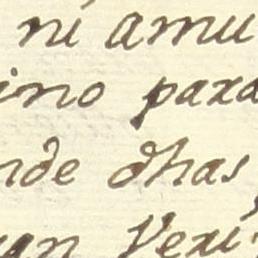 ni amu
ino para
nde dhas
van Veri